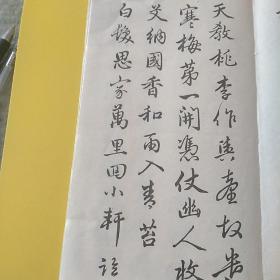 天教桃李作輿臺故出
寒梅第一開憑仗幽人收
艾納國香和雨入青苔
白髮思家萬里回小軒